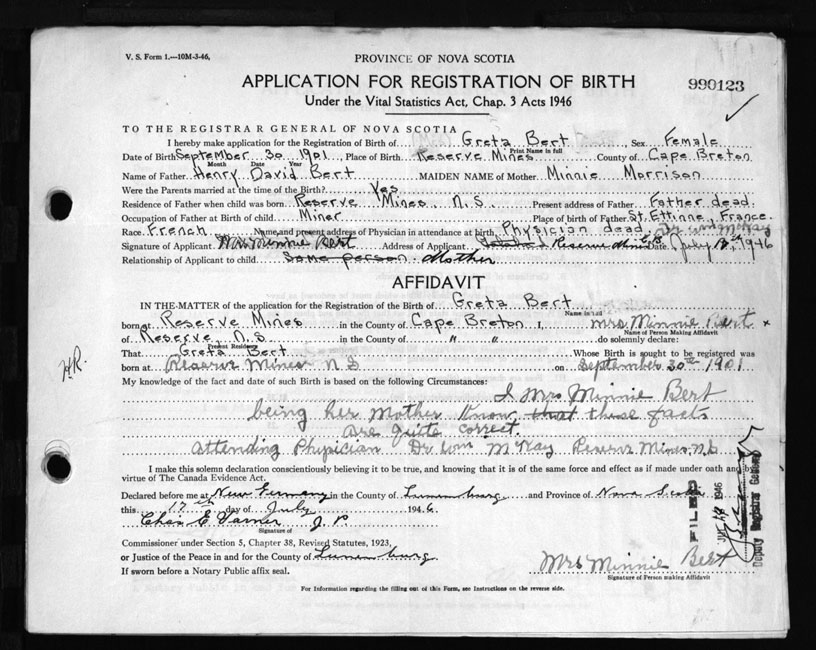 V. S. Form 1.—10M-3-46,
PROVINCE OF NOVA SCOTIA
APPLICATION FOR REGISTRATION OF BIRTH
990123
Under the Vital Statistics Act, Chap. 3 Acts 1946
TO THE REGISTRAR GENERAL OF NOVA SCOTIA
I hereby make application for the Registration of Birth of Greta Bert, Sex Female
Print Name in full
Date of Birth September 30 1901 Place of Birth Reserve Mines County of Cape Breton
Month Date Year
Name of Father Henry David Bert MAIDEN NAME of Mother Minnie Morrison
Were the Parents married at the time of the Birth? Yes
Residence of Father when child was born Reserve Mines, N.S. Present address of Father Father dead.
Occupation of Father at Birth of child Miner Place of birth of Father St. Ettinne, France.
Race French Name and present address of Physician in attendance at birth Physician dead, Dr Wm McKay
Signature of Applicant Mrs Minnie Bert Address of Applicant Reserve Mines Date July 1946
Relationship of Applicant to child Same person. Mother
AFFIDAVIT
IN THE MATTER of the application for the Registration of the Birth of Greta Bert
Name in full
born at Reserve Mines in the County of Cape Breton I, Mrs Minnie Bert x
Name of Person Making Affidavit
of Reserve, N.S. in the County of " " do solemnly declare:
Present Residence
That Greta Bert Whose Birth is sought to be registered was
born at Reserve Mines N S on September 30th 1901
H.R.
My knowledge of the fact and date of such Birth is based on the following Circumstances:
I Mrs Minnie Bert
being her Mother Know that these facts
are quite correct.
Attending Physician Dr Wm McKay Reserve Mines, N.S
I make this solemn declaration conscientiously believing it to be true, and knowing that it is of the same force and effect as if made under oath and by
virtue of The Canada Evidence Act.
Declared before me at New Germany in the County of Lunenburg and Province of Nova Scotia
this 17th day of July 1946
Chas E Varner J. P.
Signature of
Commissioner under Section 5, Chapter 38, Revised Statutes, 1923,
or Justice of the Peace in and for the County of Lunenburg.
If sworn before a Notary Public affix seal.
Mrs Minnie Bert
Signature of Person making Affidavit
FILED
1946
Deputy Registrar General
For Information regarding the filling out of this Form, see Instructions on the reverse side.